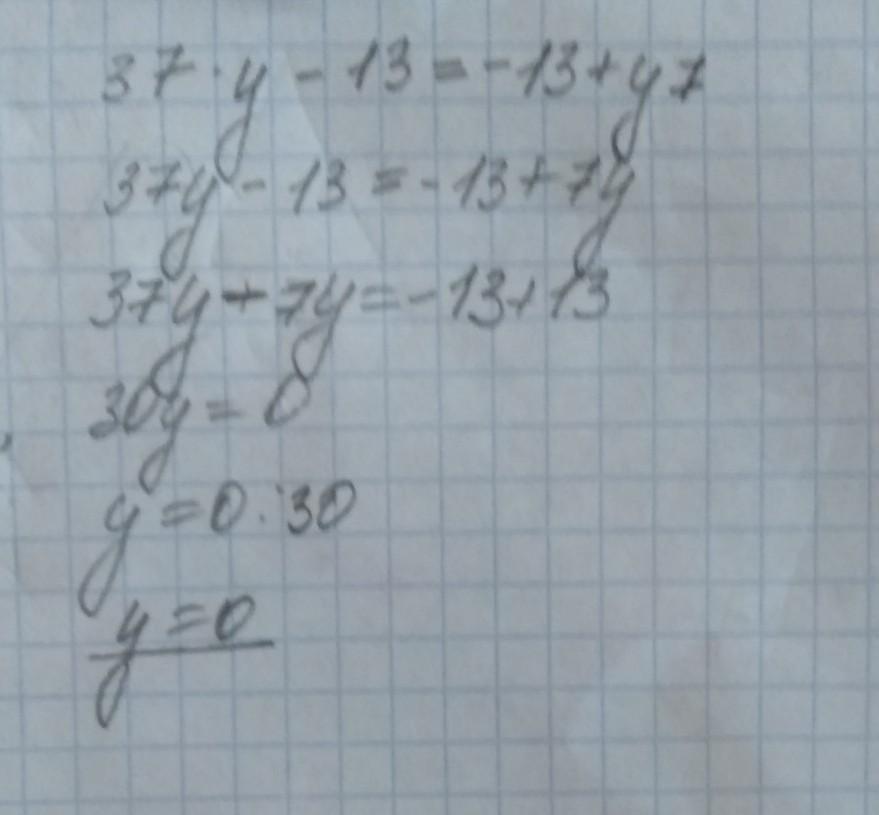 37 · y - 13 = -13 + y7
37y - 13 = -13 + 7y
37y + 7y = -13 + 13
30y = 0
y = 0 : 30
y = 0